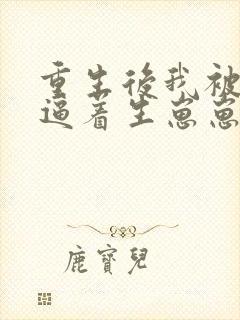 重生後我被
逼着生崽崽
鹿寶兒